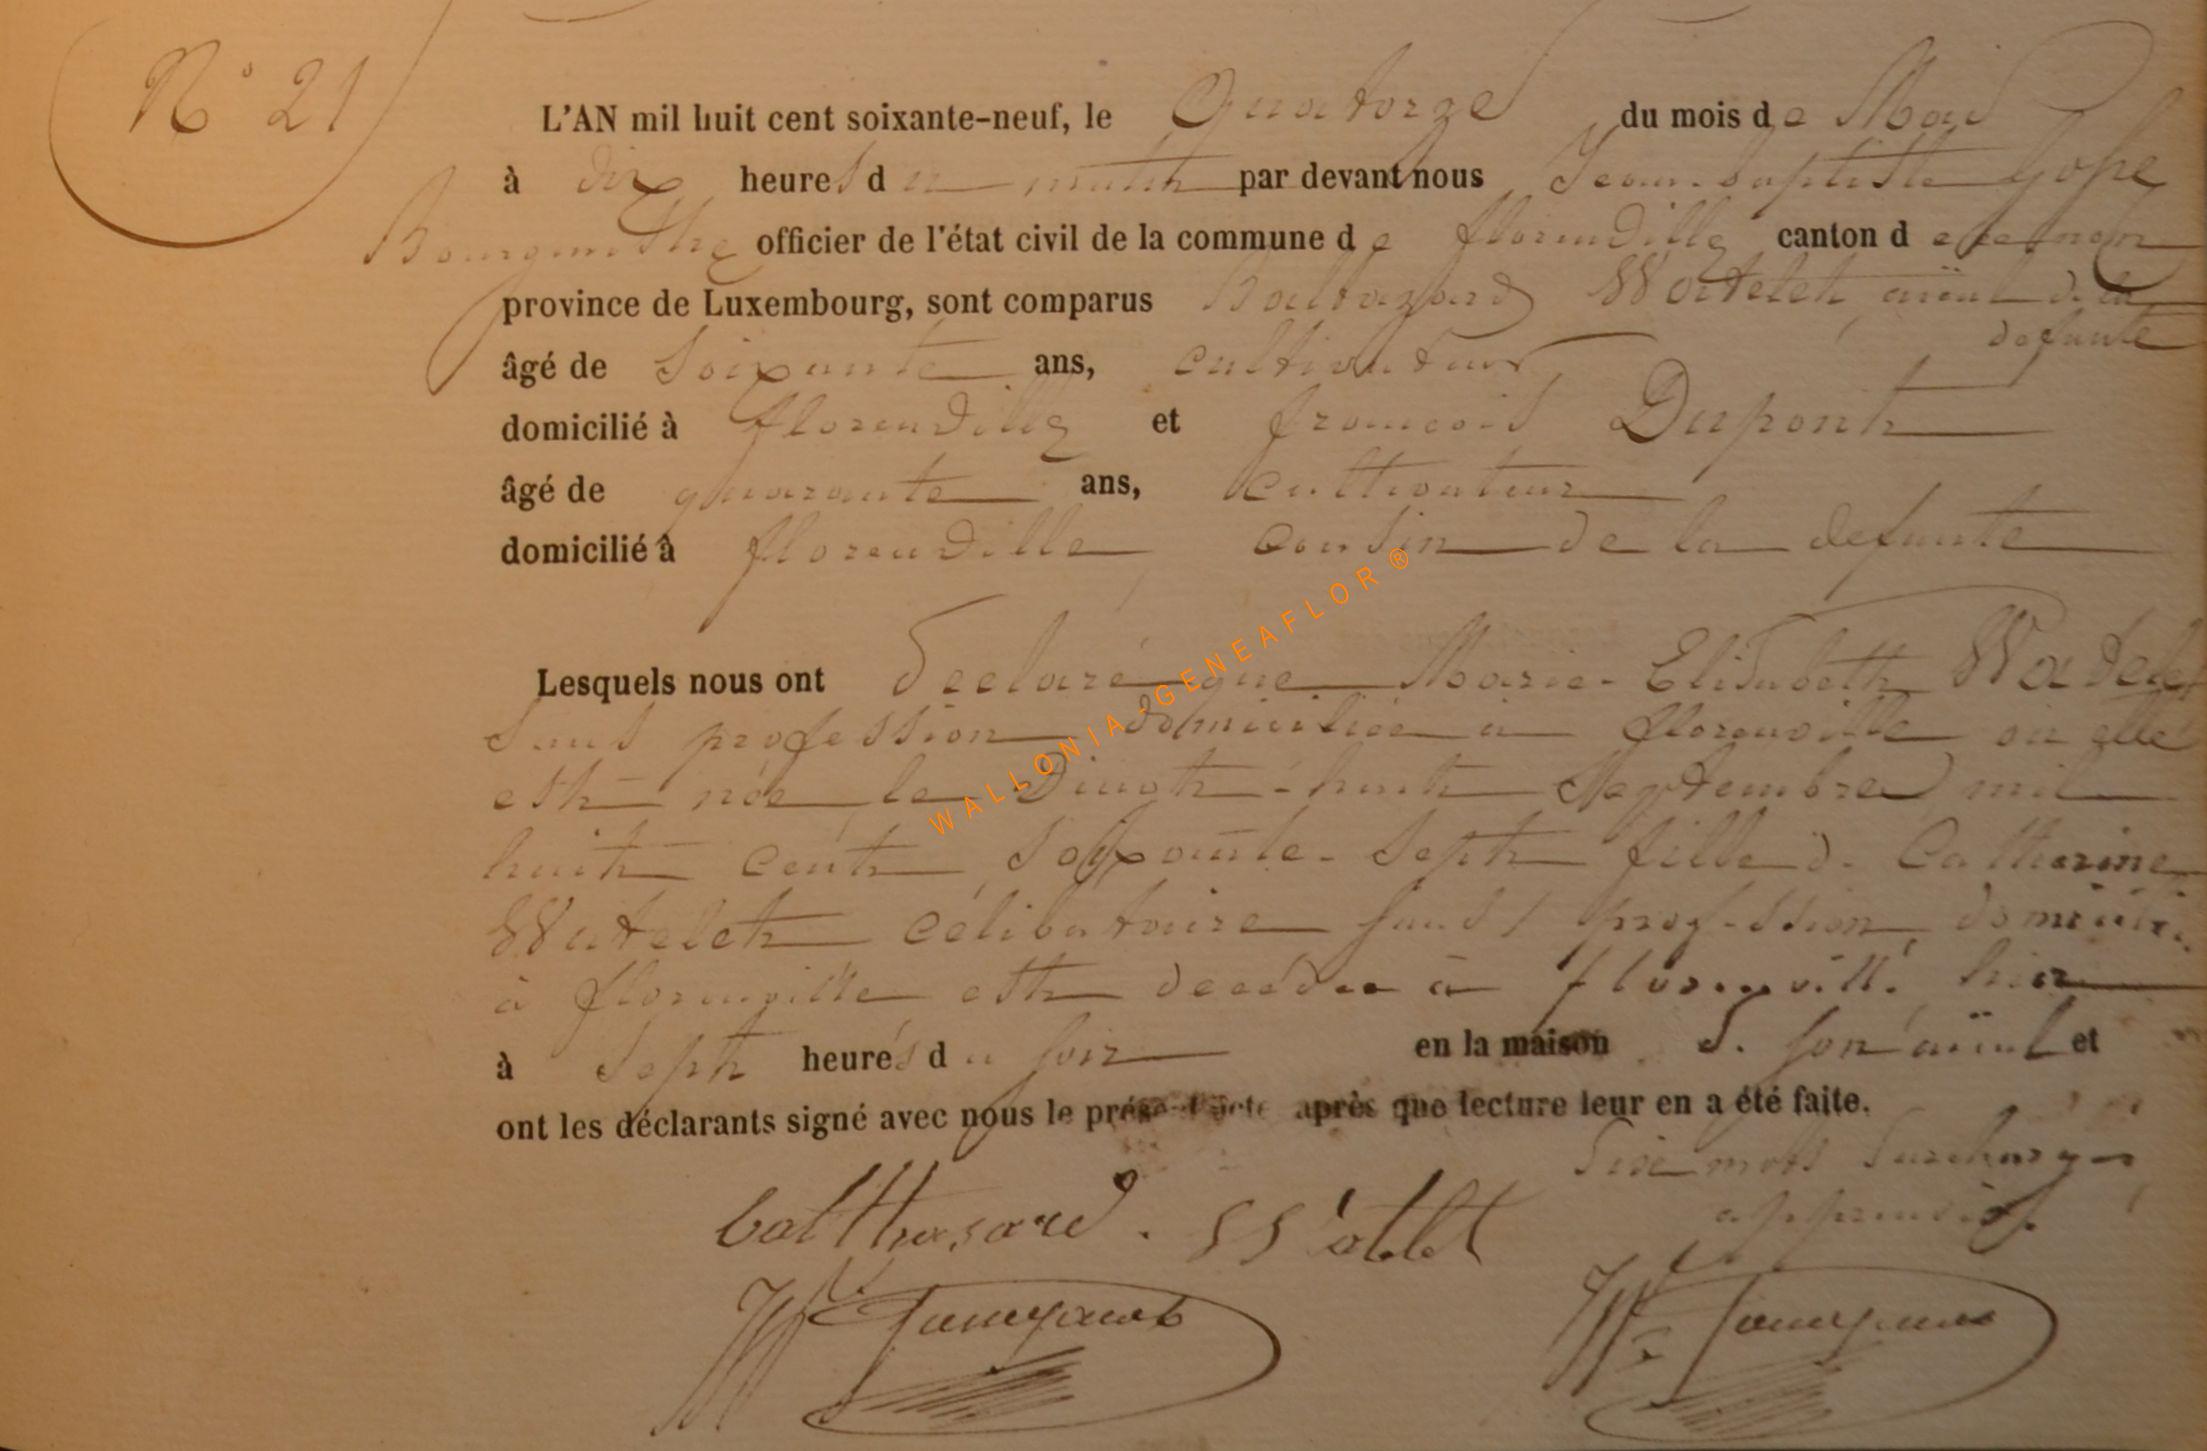 N° 21
L'AN mil huit cent soixante-neuf, le Quatorze du mois de Mai
à dix heures du matin par devant nous Jean-baptiste
Bourgmestre officier de l'état civil de la commune de florenville canton de
province de Luxembourg, sont comparus Baltazard Watelet aïeul de la
defunte
âgé de Soixante ans, cultivateur
domicilié à florenville et francois Dupont
âgé de quarante ans, cultivateur
domicilié à florenville cousin de la defunte
Lesquels nous ont declaré que Marie-Elisabeth Watelet
Sans profession domiciliée à florenville où elle
est née le Vingt-huit Septembre mil
huit cent Soixante-Sept fille de Catherine
Watelet célibataire sans profession domiciliée
à florenville est decedee à florenville hier
à Sept heures du soir en la maison de son aïeul et
ont les déclarants signé avec nous le présent acte après que lecture leur en a été faite.
mots Surchargés
approuvés
balthasard. Watlet
WALLONIA-GENEAFLOR®